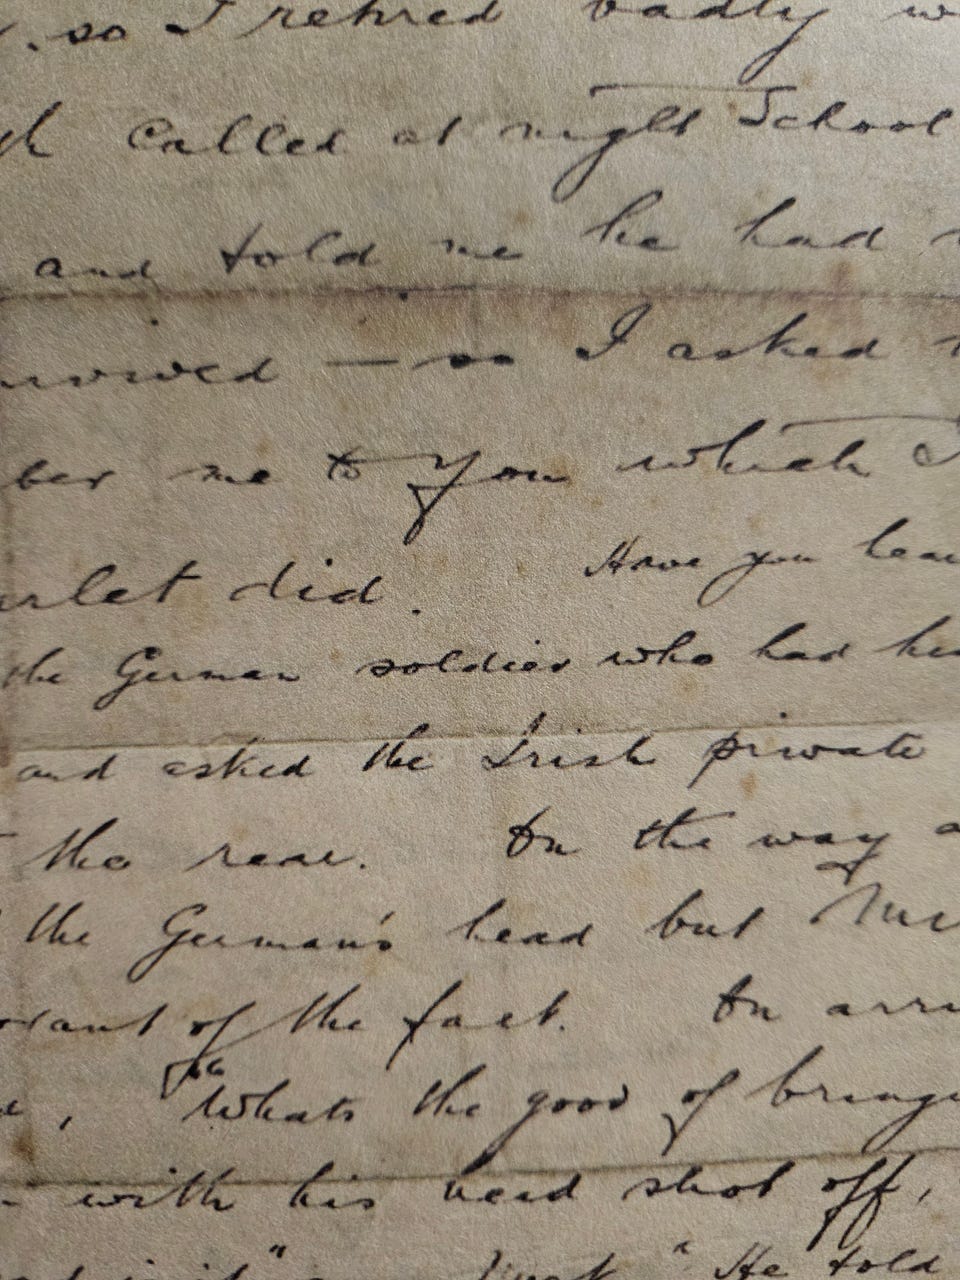 . so I retired badly w
gh called at night School
and told me he had
urvived — so I asked
ber me to you which I
arlet did. Have you hear
the German soldier who had his
and asked the Irish private
the rear. On the way a
the German's head but
orant of the fact. On arri
, "Whats the good of bringi
with his head shot off,
" He told